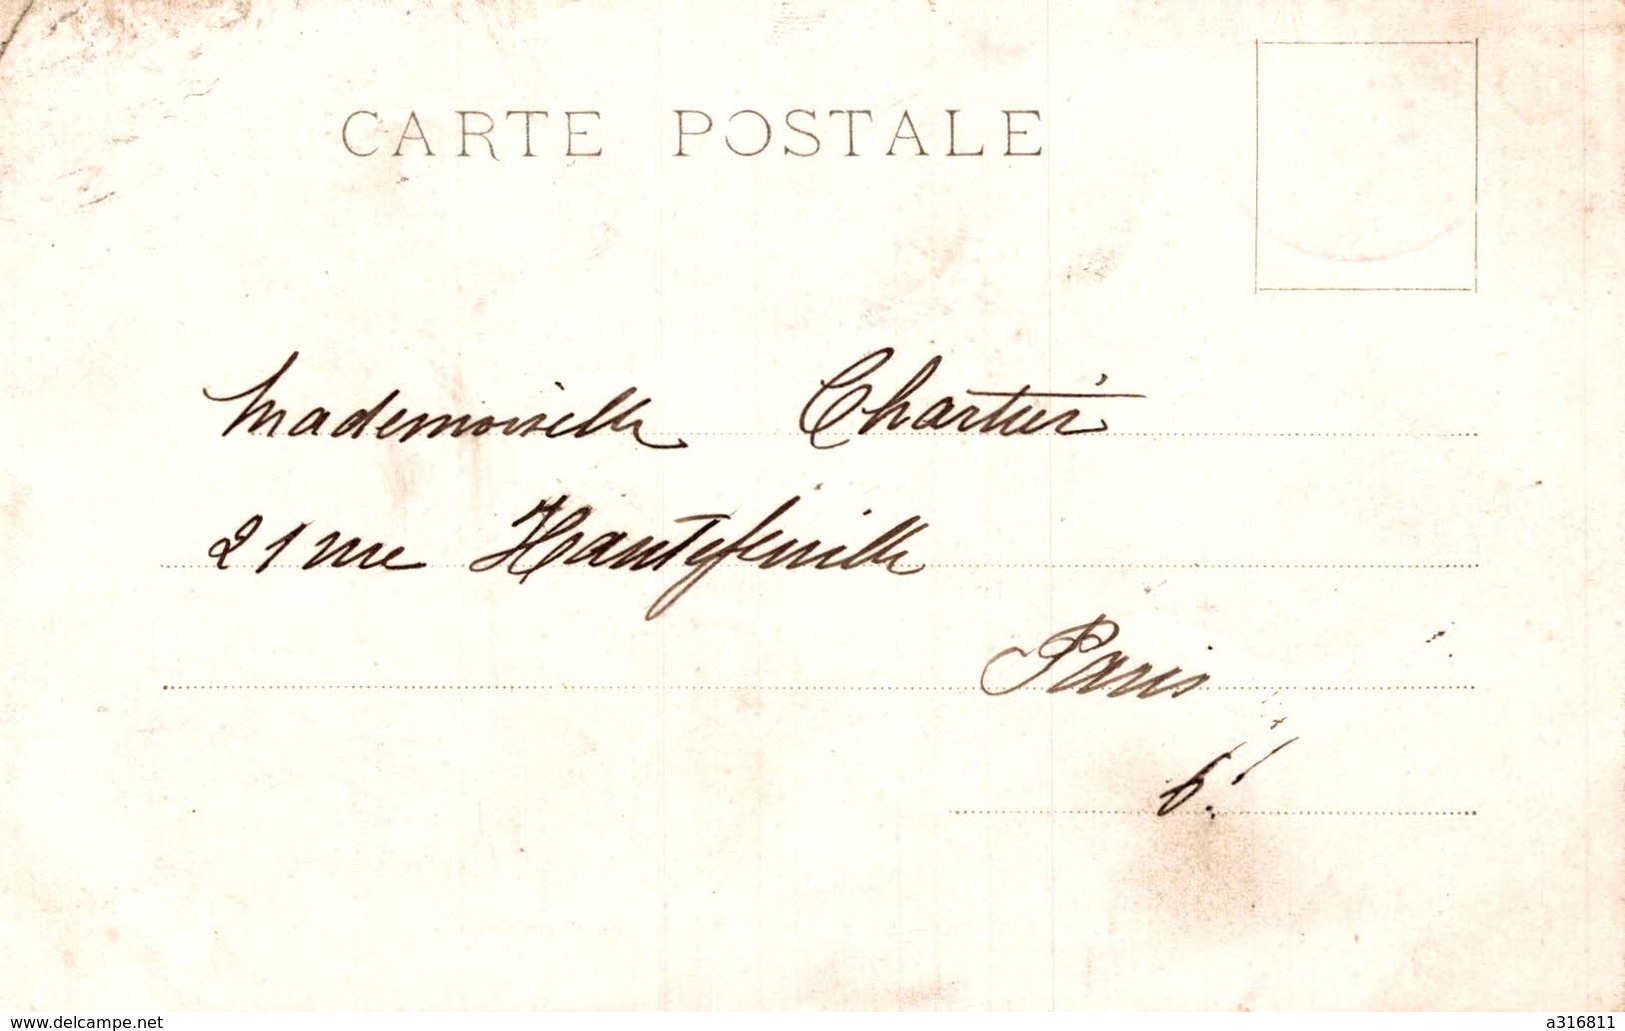 CARTE POSTALE
Mademoiselle Chartier
21 rue Hautefeuille
Paris
6.
www.delcampe.net
a316811